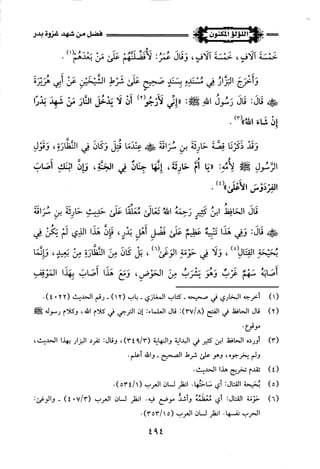 اللؤلؤ المكنون
فضل من شهد غزوة بدر
خَمْسَةَ آلَافٍ، خَمْسَةَ آلَافٍ، وَقَالَ عُمَرُ: لَأُفَضِّلَنَّهُمْ عَلَى مَنْ بَعْدَهُمْ(١).
وَأَخْرَجَ البَزَّارُ فِي مُسْنَدِهِ بِسَنَدٍ صَحِيحٍ عَلَى شَرْطِ الشَّيْخَيْنِ عَنْ أَبِي هُرَيْرَةَ
قَالَ: قَالَ رَسُولُ اللهِ ﷺ: «إِنِّي لَأَرْجُو(٢) أَنْ لَا يَدْخُلَ النَّارَ مَنْ شَهِدَ بَدْرًا
إِنْ شَاءَ اللهُ»(٣).
وَقَدْ ذَكَرْنَا قِصَّةَ حَارِثَةَ بنِ سُرَاقَةَ ﷺ عِنْدَمَا قُتِلَ وَكَانَ فِي النَّظَّارَةِ، وَقَوْلِ
الرَّسُولِ ﷺ لِأُمِّهِ: «يَا أُمَّ حَارِثَةَ، إِنَّهَا جِنَانٌ فِي الجَنَّةِ، وَإِنَّ ابْنَكِ أَصَابَ
الفِرْدَوْسَ الأَعْلَى»(٤).
قَالَ الحَافِظُ ابنُ كَثِيرٍ رَحِمَهُ اللهُ تَعَالَى مُعَلِّقًا عَلَى حَدِيثِ حَارِثَةَ بنِ سُرَاقَةَ
قَالَ: وَفِي هَذَا تَنْبِيهٌ عَظِيمٌ عَلَى فَضْلِ أَهْلِ بَدْرٍ، فَإِنَّ هَذَا الذِي لَمْ يَكُنْ فِي
بُحَيْحَةِ القِتَالِ(٥)، وَلَا فِي حَوْمَةِ الوَغَى(٦)، بَلْ كَانَ مِنَ النَّظَّارَةِ مِنْ بَعِيدٍ، وَإِنَّمَا
أَصَابَهُ سَهْمٌ غَرْبٌ وَهُوَ يَشْرَبُ مِنَ الحَوْضِ، وَمَعَ هَذَا أَصَابَ بِهَذَا المَوْقِفِ
(١) أخرجه البخاري في صحيحه - كتاب المغازي - باب (١٢) - رقم الحديث (٤٠٢٢).
(٢) قال الحافظ في الفتح (٣٧/٨): قال العلماء: إن الترجي في كلام الله، وكلام رسوله ﷺ
موقوع.
(٣) أورده الحافظ ابن كثير في البداية والنهاية (٣٤٩/٣)، وقال: تفرد البزار بهذا الحديث،
ولم يخرجوه، وهو على شرط الصحيح - والله أعلم.
(٤) تقدم تخريج هذا الحديث.
(٥) بُحَيْحَة القتال: أي سَاحَتُها. انظر لسان العرب (٥٣٤/١).
(٦) حَوْمَة القتال: أي مُعظَمُه وأشدُّ موضع فيه. انظر لسان العرب (٤٠٧/٣) - والوغى:
الحرب نفسها. انظر لسان العرب (٣٥٣/١٥).
٤٩٤